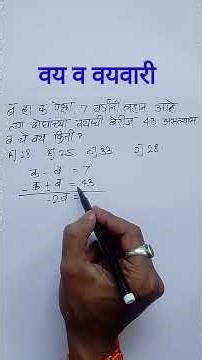 वय व वयवारी
ब हा क पेक्षा 7 वर्षांनी लहान आहे
त्या दोघांच्या वयाची बेरीज 43 असल्यास
ब चे वय किती?
A) 18 B) 25 C) 33 D) 28
क - ब = 7
- क + ब = 43
-2ब =